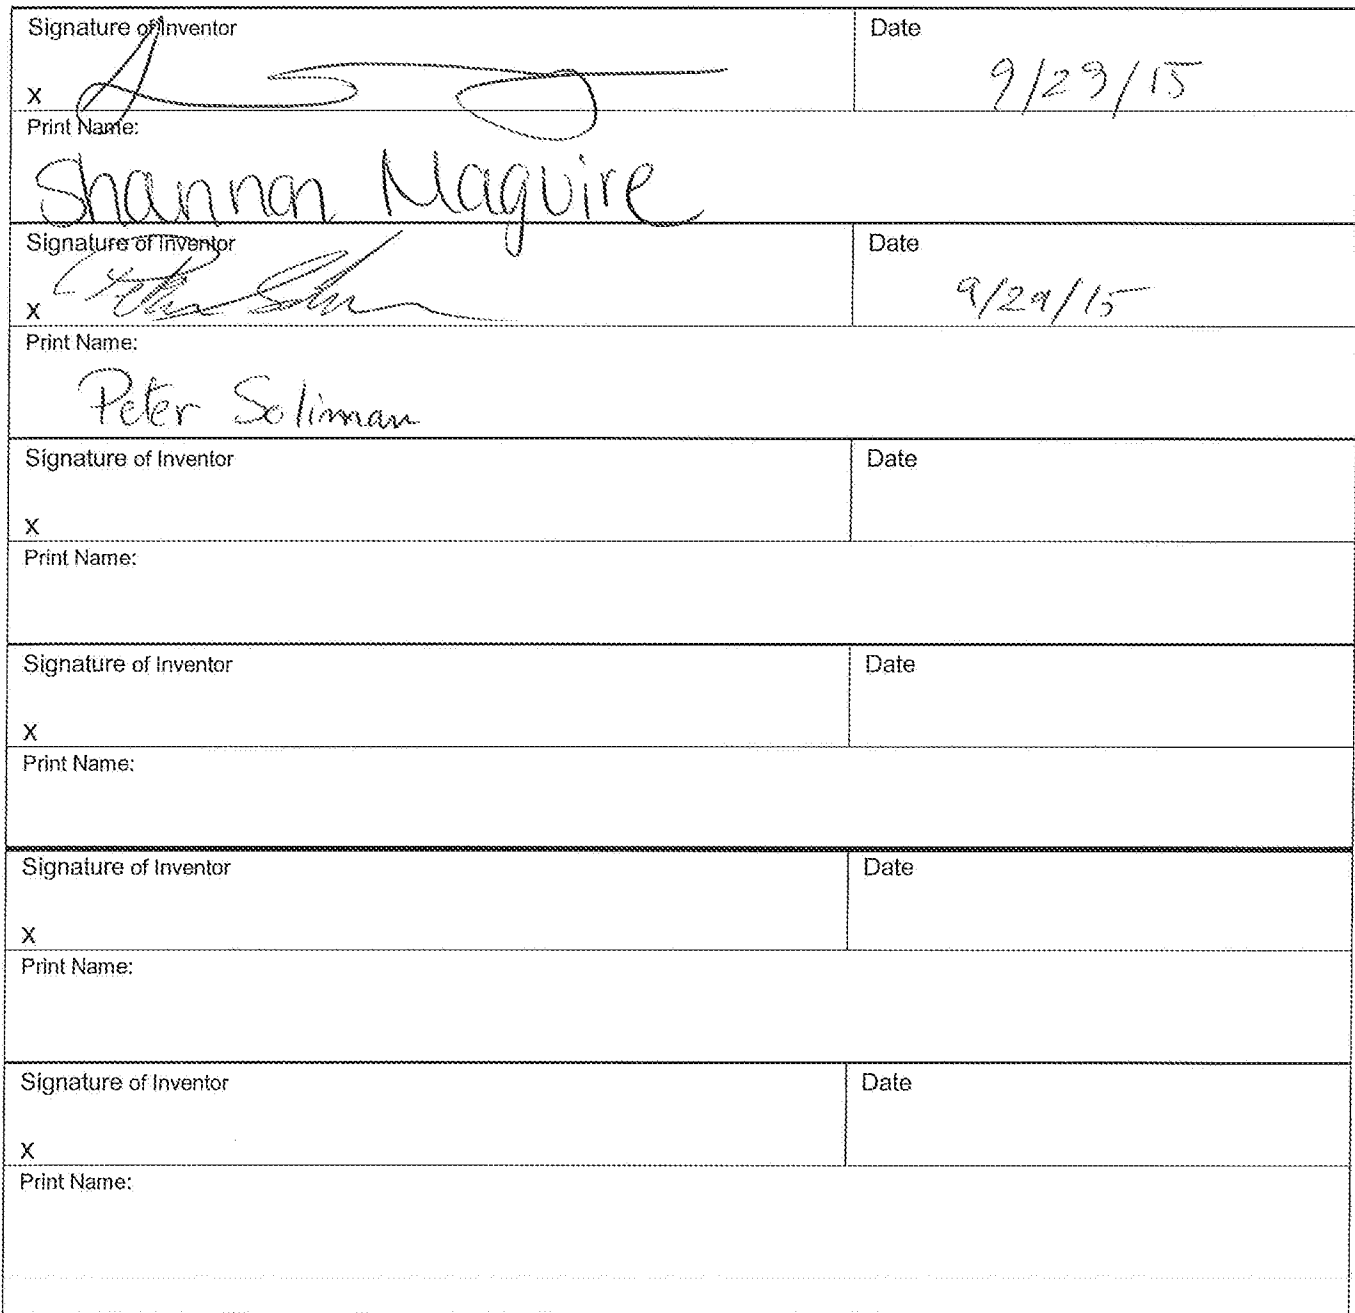 Signature of Inventor Date
X 9/29/15
Print Name:
Shannon Maguire
Signature of Inventor Date
X 9/29/15
Print Name:
Peter Soliman
Signature of Inventor Date
X
Print Name:
Signature of Inventor Date
X
Print Name:
Signature of Inventor Date
X
Print Name:
Signature of Inventor Date
X
Print Name: